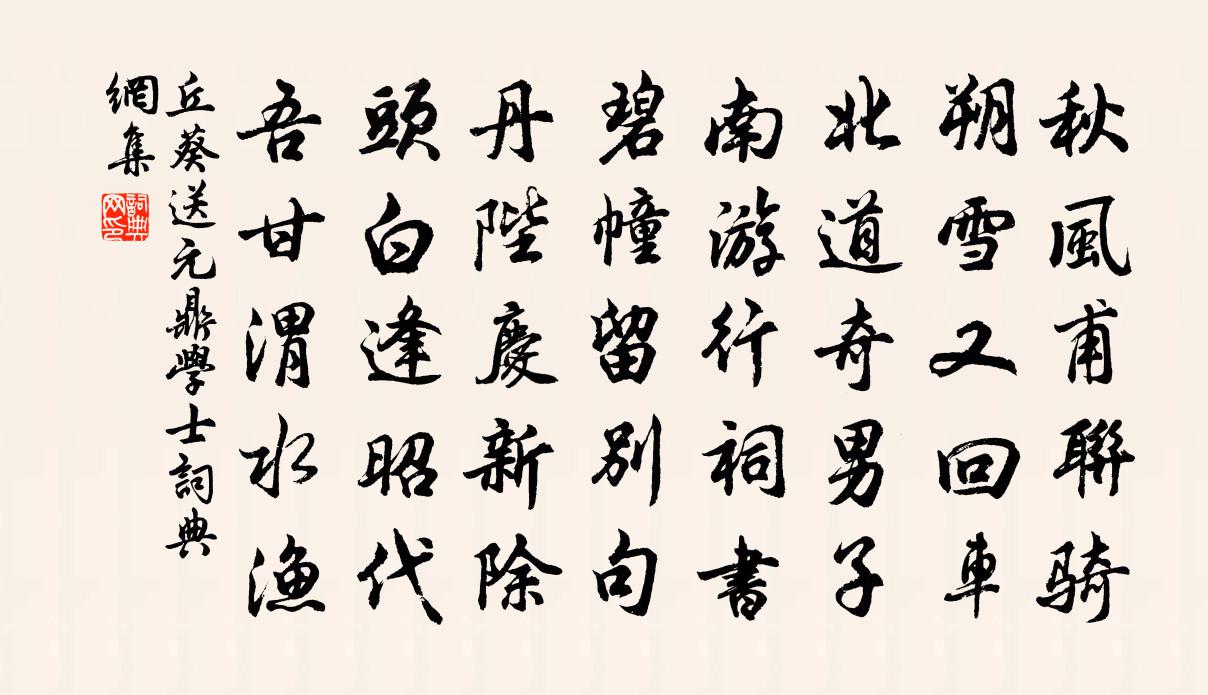 秋風甫聯騎
朔雪又回車
北道奇男子
南游行祠書
碧幢留別句
丹陛慶新除
頭白逢昭代
吾甘渭水漁
丘葵送元鼎學士詞典
網集
詞典网印